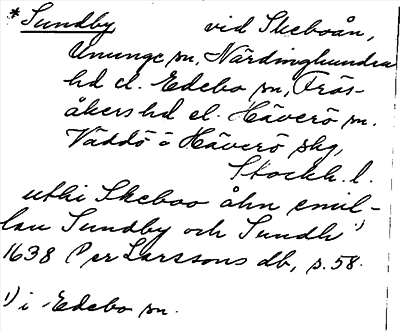 *Sundby, vid Skeboån,
Ununge sn, Närdinghundra
hd el. Edebo sn, Frös-
åkers hd el. Häverö sn.
Väddö o Häverö skg,
Stockh. l.
uthi Skeboo åhn emil-
lan Sundby och Sundh 1)
1638 Per Larssons db, s. 58.
1) i Edebo sn.